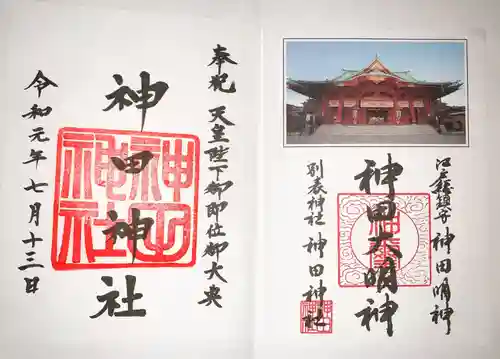 奉祝 天皇陛下御即位御大典
神田神社
令和元年七月十三日
江戸総鎮守 神田明神
神田大明神
別表神社 神田神社